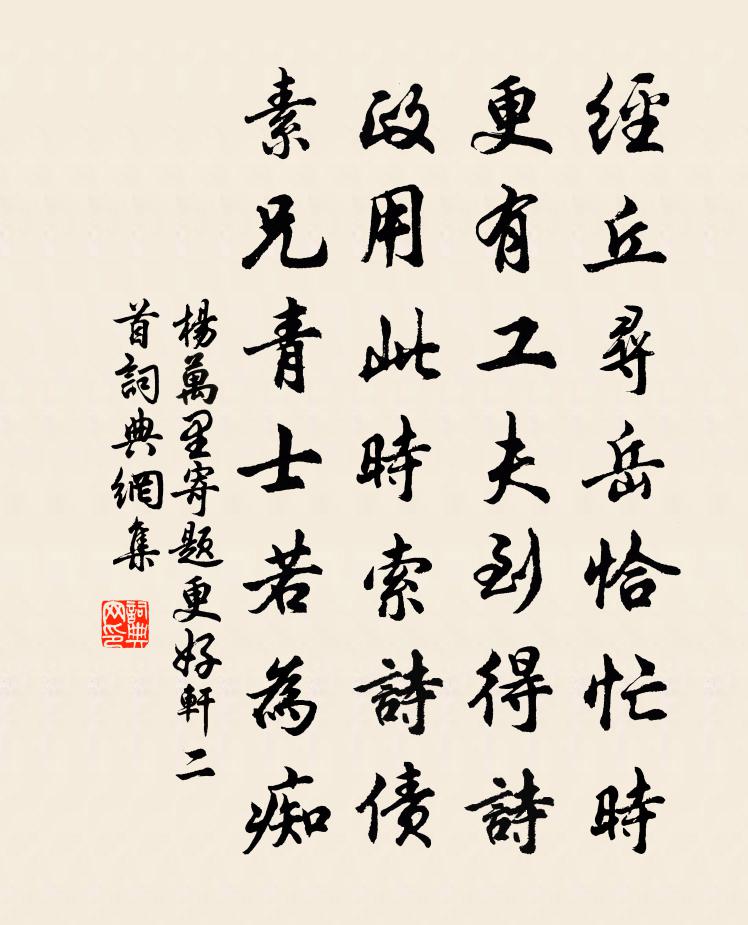 經丘尋岳恰忙時
更有工夫到得詩
政用此時索詩債
素兄青士若為痴
楊萬里寄題更好軒二
首詞典網集
詞典
网印